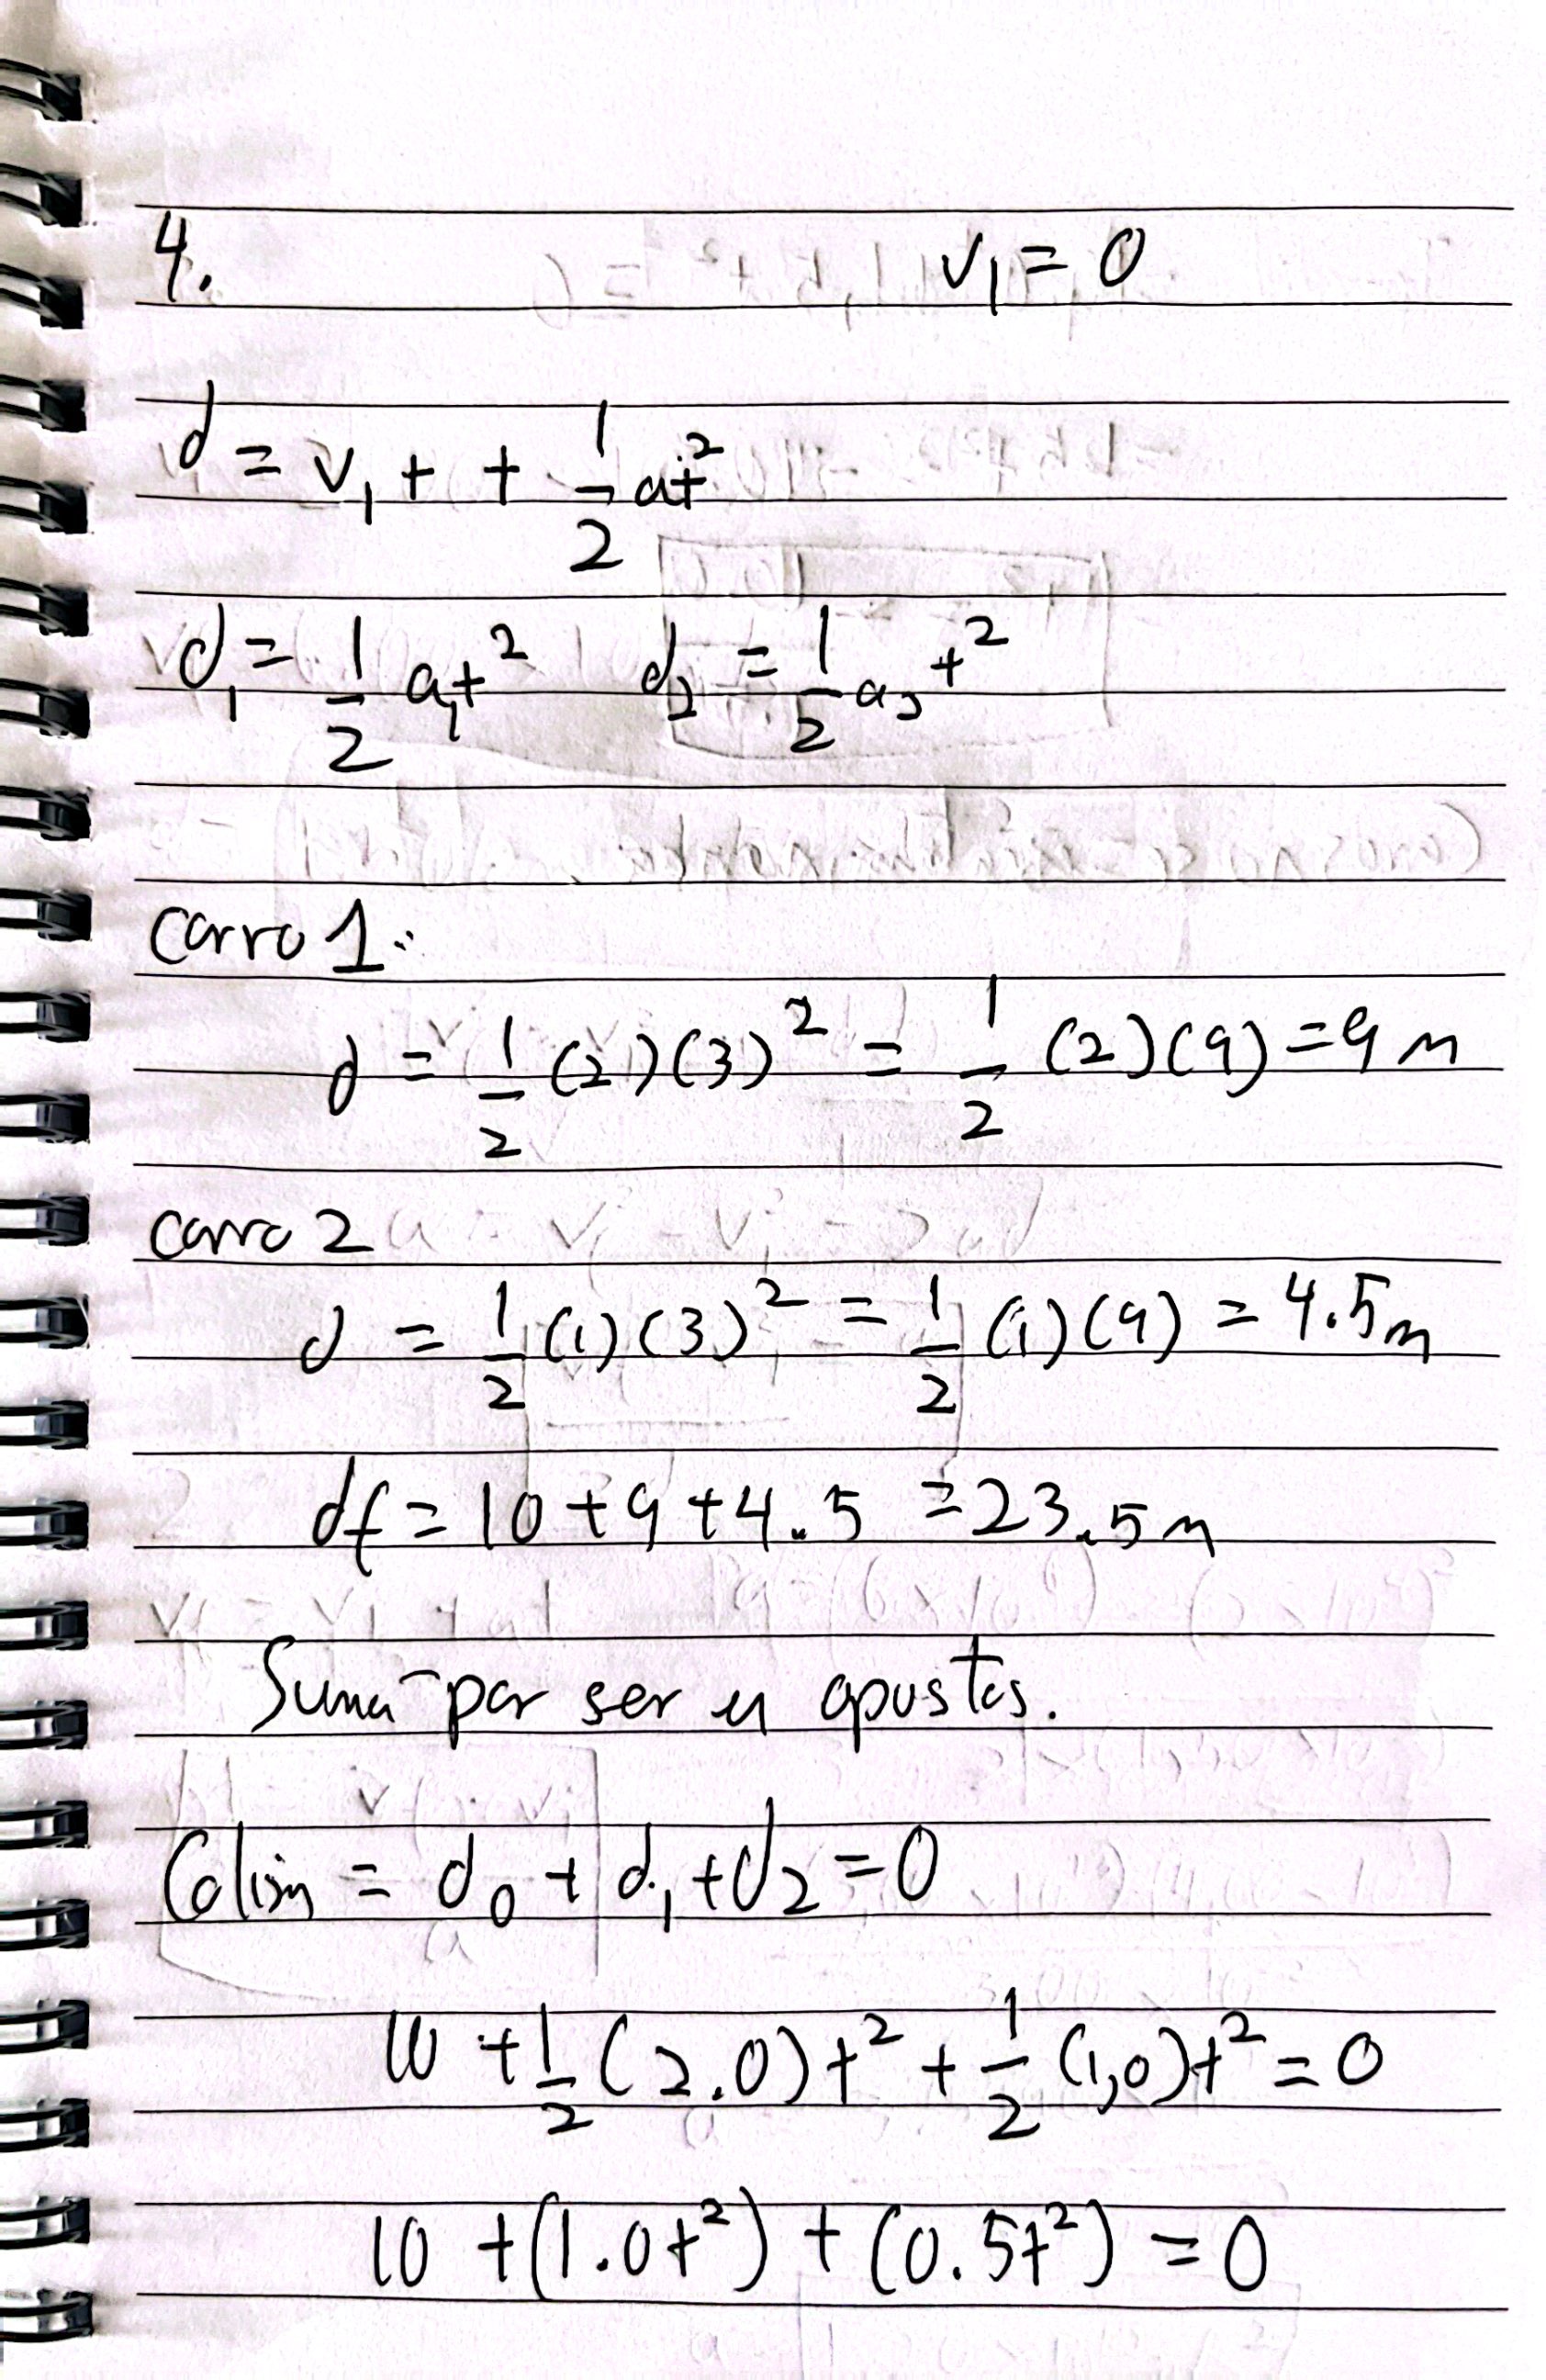 4. v₁ = 0
d = v₁t + 1/2 at²
d₁ = 1/2 a₁t² d₂ = 1/2 a₂t²
Carro 1:
d = 1/2 (2)(3)² = 1/2 (2)(9) = 9 m
carro 2
d = 1/2 (1)(3)² = 1/2 (1)(9) = 4.5 m
df = 10 + 9 + 4.5 = 23.5 m
Suma por ser en opuestos.
= d₀ + d₁ + d₂ = 0
10 + 1/2 (2.0)t² + 1/2 (1,0)t² = 0
10 + (1.0t²) + (0.5t²) = 0